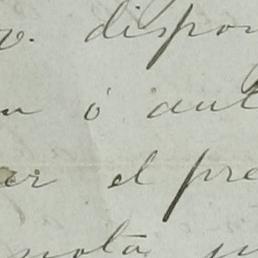 v. dispon
n ó aut
er el pre
nota p